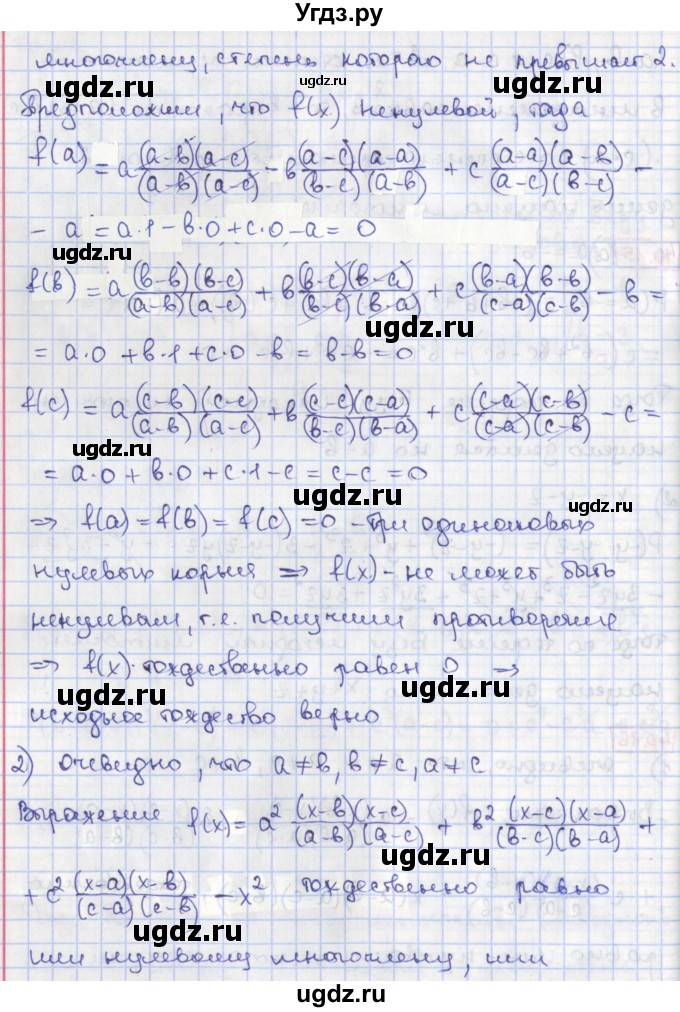 Угдз.ру
многочлену, степень которого не превышает 2.
Предположим, что f(x) ненулевой, тогда
f(a) = a (a-в)(a-c)/(a-в)(a-c) - в (a-c)(a-a)/(в-c)(a-в) + c (a-a)(a-в)/(a-c)(в-c) -
- a = a·1 - в·0 + c·0 - a = 0
f(в) = a (в-в)(в-c)/(a-в)(a-c) + в (в-c)(в-a)/(в-c)(в-a) + c (в-a)(в-в)/(c-a)(c-в) - в =
= a·0 + в·1 + c·0 - в = в-в = 0
f(c) = a (c-в)(c-c)/(a-в)(a-c) + в (c-c)(c-a)/(в-c)(в-a) + c (c-a)(c-в)/(c-a)(c-в) - c =
= a·0 + в·0 + c·1 - c = c-c = 0
⇒ f(a) = f(в) = f(c) = 0 - три одинаковых
нулевых корня ⇒ f(x) - не может быть
ненулевым, т.е. получили противоречие
⇒ f(x) тождественно равен 0 ⇒
исходное тождество верно
2) Очевидно, что a≠в, в≠c, a≠c
Выражение f(x) = a² (x-в)(x-c)/(a-в)(a-c) + в² (x-c)(x-a)/(в-c)(в-a) +
+ c² (x-a)(x-в)/(c-a)(c-в) - x² тождественно равно
или нулевому многочлену, или
ugdz.ru